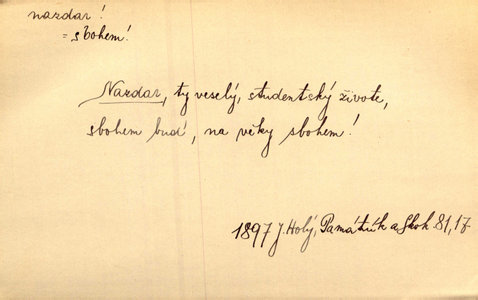 nazdar!
= sbohem!
Nazdar, ty veselý, studentský živote,
sbohem buď, na věky sbohem!
1897 J. Holý, Památník a Skok 81,17